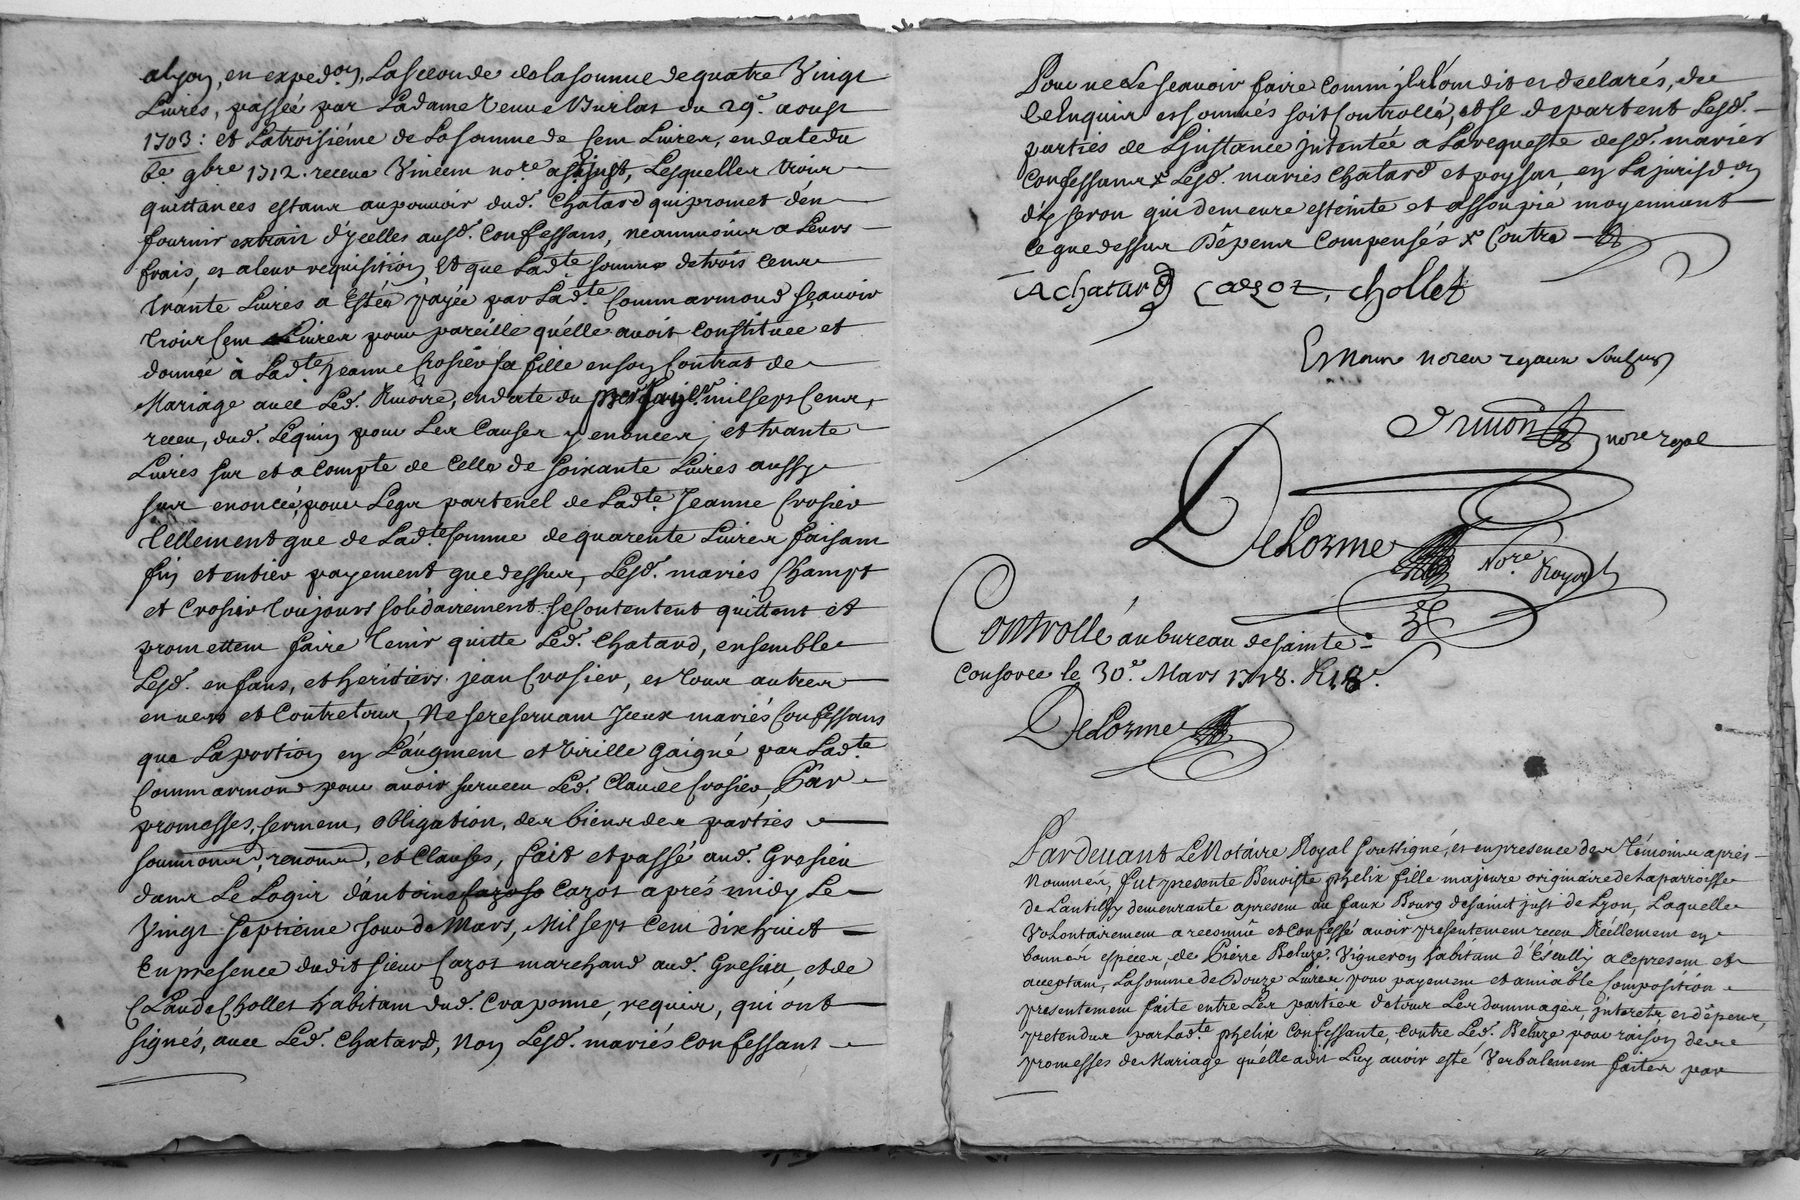 alyon, en exped.on, La seconde de la somme de quatre Vingt
Livres, passée par La dame Veuve Burlat du 29e. aoust
1703: et La troisiéme de La somme de Cent Livres, en date du
6e. 9bre 1712. receue Vincent nore. a st. just, Lesquelles trois
quittances estant au pouvoir dud. Chatard qui promet d'en
fournir extrait d'ycelles ausd. Confessans, neanmoins a Leurs
frais, et a leur requisition, Et que Ladte. somme de trois Cens
trante Livres a Estée payée par Ladte. Commarmond sçavoir
trois Cent Livres pour pareille qu'elle avoit Constituee et
donnée à Ladte. Jeanne Crosier sa fille en son Contrat de
Mariage avec Led. Rivoire, en date du mil sept Cens,
receu, dud. Lequin pour Les Causes y enoncees, et trante
Livres sur et a Compte de Celle de soixante Livres aussy
sus enoncée, pour Legat paternel de Ladte. Jeanne Crosier
tellement que de Ladte. somme de quarente Livres faisant
fin et entier payement que dessus, Lesd. mariés Champt
et Crosier toujours solidairement se Contentent quittent et
promettent faire tenir quitte Led. Chatard, ensemble
Lesd. enfans, et heritiers jean Crosier, et tous autres
envers et Contre tous, Ne se reservant Iceux mariés Confessans
que La portion en L'augment et Virille Gaigné par Ladte.
Commarmond pour avoir survecu Led. Claude Crosier, Par
promesses, serment, obligation, des biens des parties
soumissions, renons, et Clauses, fait et passé aud. Gresieu
dans Le Logis d'antoine Cazot aprés midy Le
Vingt septieme Jour de Mars, Mil sept Cent dix huict
En presence dudit sieur Cazot marchand aud. Gresieu, et de
Claude Chollet habitant dud. Craponne, requis, qui ont
signés, avec Led. Chatard, Non Lesd. mariés Confessant
Pour ne Le sçavoir faire Comm'ils l'ont dit et declarés, de
Ce Enquis et sommés soit Controllé, et se departent Lesd.
parties de L'instance intentée a La requeste desd. mariés
Confessans x Lesd. mariés Chatard et poysat, en La jurisd.on
d'yseron qui demeure esteinte et assoupie moyennant
Ce que dessus Dépens Compensés x Contre
A chatard Cazot, Chollet
Et Nous nores royaux soubsnes
nore royal
DeLorme Nore. Royal
Controllé au bureau de sainte
Consorce le 30e. Mars 1718. R 18s.
DeLorme
Pardevant Le Notaire Royal soussigné, et en presence des Témoins aprés
Nommés, fut presente Benoiste phelix fille majeure originaire de La parroisse
de Lantilly demeurante a present au faux Bourg de saint just de Lyon, Laquelle
Volontairement a reconnüe et Confessé avoir presentement receu Réellement en
bonnes especes, de Pierre Beluze Vigneron habitant d'Escully a ce present et
acceptant, La somme de Douze Livres pour payement et amiable Composition
presentement faite entre Les parties de tous Les dommages, interets et dépens,
pretendus par Ladte. phelix Confessante, Contre Led. Beluze pour raison des
promesses de Mariage qu'elle a dit Luy avoir esté Verbalement faites par